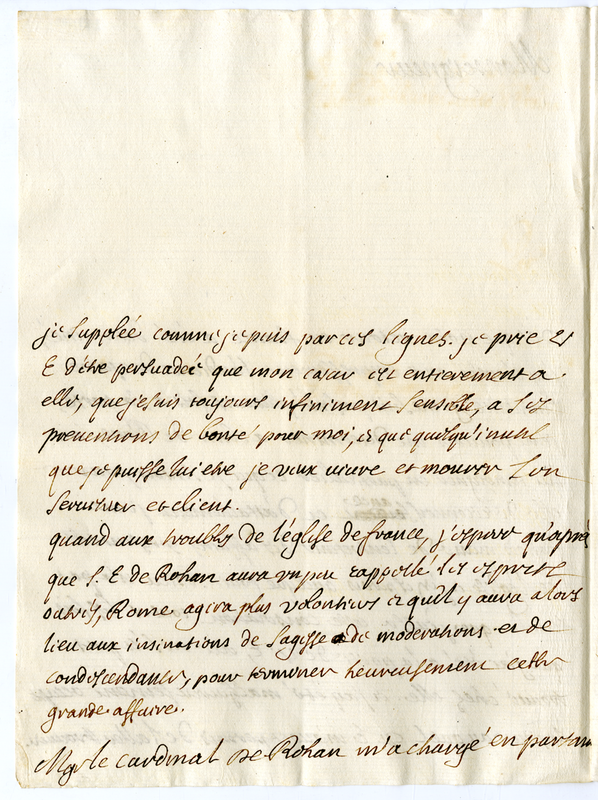 je supplée comme je puis par ces lignes. je prie V
E d'être persuadée que mon cœur est entierement a
elle, que je suis toujours infiniment sensible, a ses
preventions de bonté pour moi, et que quelqu'inutil
que je puisse lui etre je veux vivre et mourir son
serviteur et client.
quand aux troubles de l'église de france, j'espere qu'après
que S. E de Rohan aura un peu rappellé les esprits
outrés, Rome agira plus volontiers et qu'il y aura alors
lieu aux insinations de sagesse de modérations et de
condescendances, pour terminer heureusement cette
grande affaire.
Mgr le cardinal de Rohan m'a chargé en partant